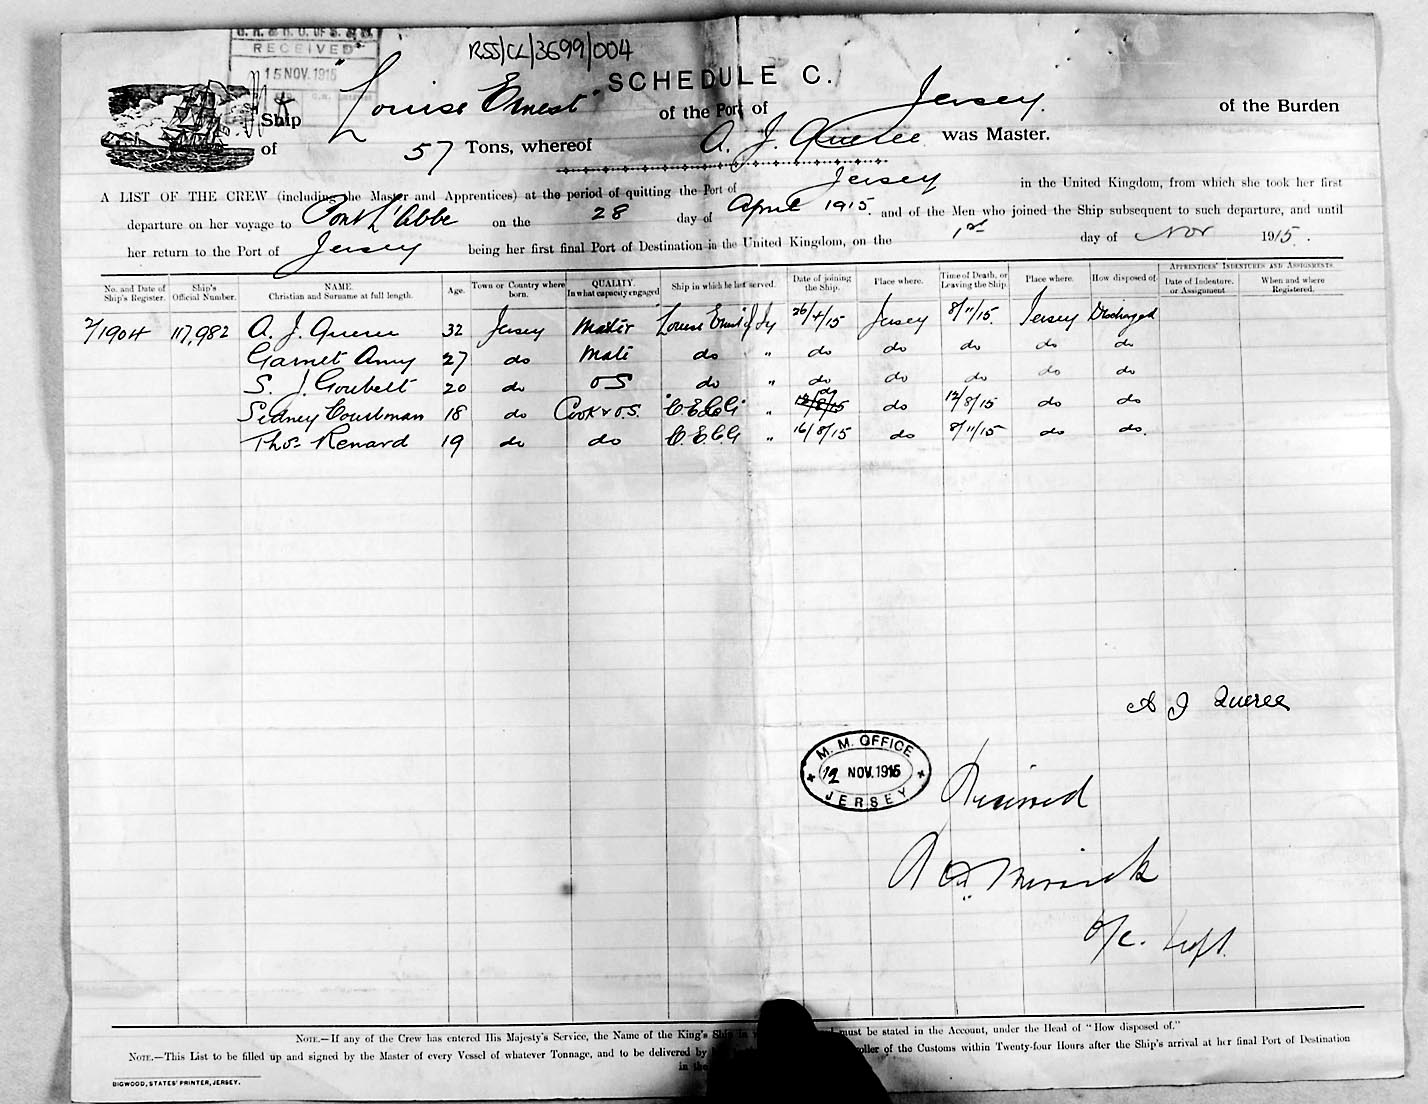 RECEIVED
15 NOV. 1915
RSS/CL/3699/004
SCHEDULE C.
Ship "Louise Ernest" of the Port of Jersey. of the Burden
of 57 Tons, whereof A. J. Queree was Master.
A LIST OF THE CREW (including the Master and Apprentices) at the period of quitting the Port of Jersey in the United Kingdom, from which she took her first
departure on her voyage to Pont L'Abbe on the 28 day of April 1915. and of the Men who joined the Ship subsequent to such departure, and until
her return to the Port of Jersey being her first final Port of Destination in the United Kingdom, on the 1st day of Nov 1915.
No. and Date of Ship's Register. Ship's Official Number. NAME. Christian and Surname at full length. Age. Town or Country where born. QUALITY. In what capacity engaged Ship in which he last served. Date of joining the Ship. Place where. Time of Death, or Leaving the Ship. Place where. How disposed of. APPRENTICES' INDENTURES AND ASSIGNMENTS. Date of Indenture, or Assignment. When and where Registered.
2/1904 117,982 A. J. Queree 32 Jersey Master Louise Ernest of Jy 26/4/15 Jersey 8/11/15. Jersey Discharged
Garnet Amy 27 do Mate do " do do do do do
S. J. Goubelt 20 do OS do " do do do do do
Sidney Courtman 18 do Cook & O.S. "C.E.C.G" " 12/8/15 do do 12/8/15 do do
Thos. Renard 19 do do C.E.C.G " 16/8/15 do 8/11/15 do do.
A J Queree
M. M. OFFICE
12 NOV. 1915
JERSEY
Received
NOTE.—If any of the Crew has entered His Majesty's Service, the Name of the King's Ship must be stated in the Account, under the Head of "How disposed of."
NOTE.—This List to be filled up and signed by the Master of every Vessel of whatever Tonnage, and to be delivered by of the Customs within Twenty-four Hours after the Ship's arrival at her final Port of Destination
in the
BIGWOOD, STATES' PRINTER, JERSEY.